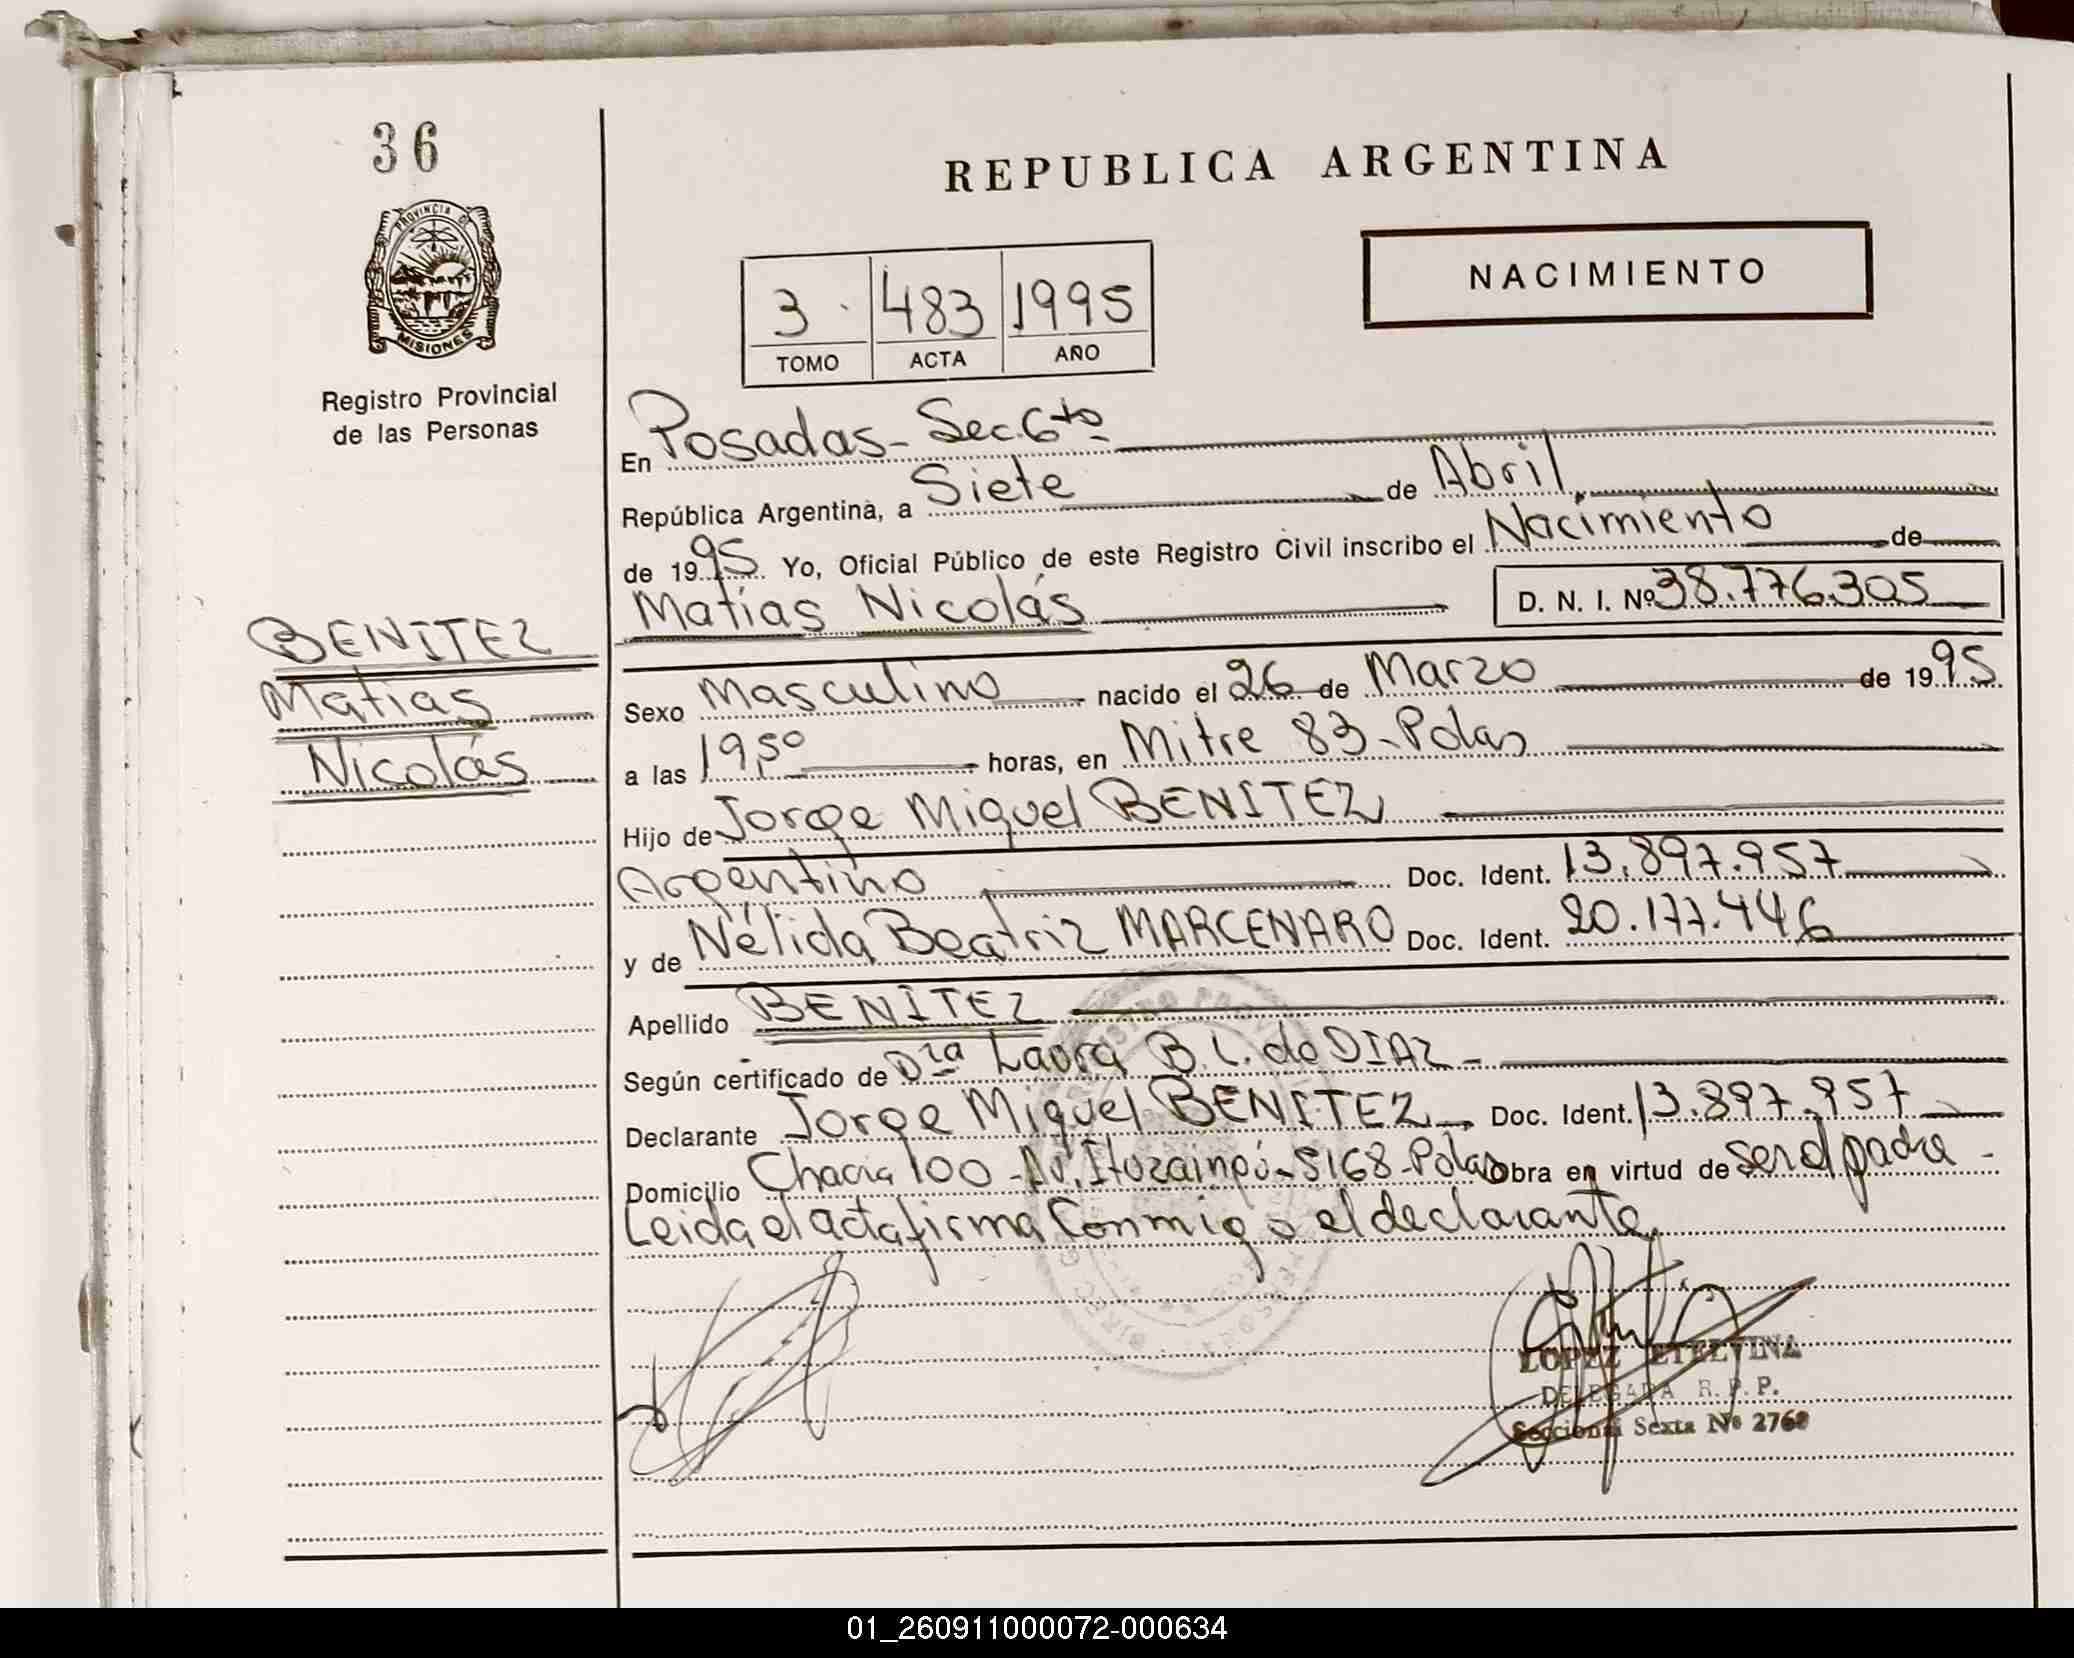 36
PROVINCIA DE
MISIONES
Registro Provincial
de las Personas
REPUBLICA ARGENTINA
NACIMIENTO
3 483 1995
TOMO ACTA AÑO
En Posadas - Sec. 6ta
República Argentina, a Siete de Abril
de 1995 Yo, Oficial Público de este Registro Civil inscribo el Nacimiento de
Matías Nicolás D. N. I. Nº 38.776.305
BENITEZ
Matias
Nicolás
Sexo Masculino nacido el 26 de Marzo de 1995
a las 19,50 horas, en Mitre 83 - Pdas
Hijo de Jorge Miguel BENITEZ
Argentino Doc. Ident. 13.897.957
y de Nélida Beatriz MARCENARO Doc. Ident. 20.177.446
Apellido BENITEZ
Según certificado de Dra Laura B. L. de DIAZ -
Declarante Jorge Miguel BENITEZ Doc. Ident. 13.897.957
Domicilio Chacra 100 - Av. Ituzaingó - 5168 - Pdas obra en virtud de ser el padre -
Leida el acta firma Conmigo el declarante.
LOPEZ ETELVINA
DELEGADA R. P. P.
Seccional Sexta Nº 2768
01_260911000072-000634